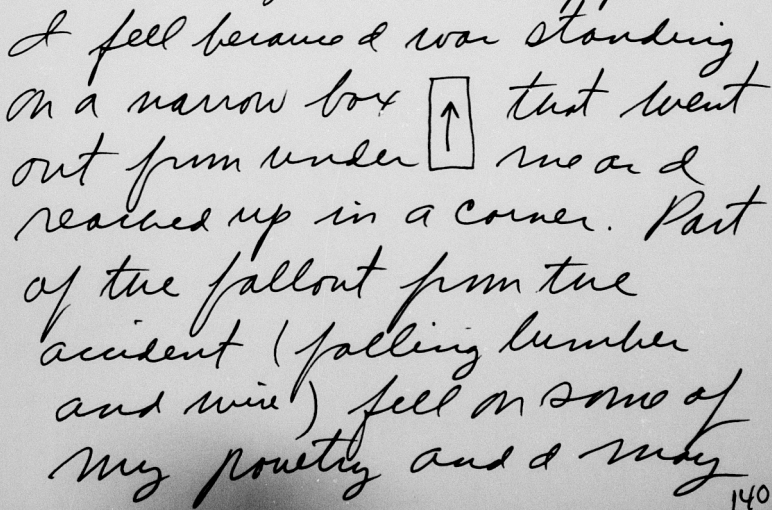 I fell because I was standing
on a narrow box ↑ that went
out from under me as I
reached up in a corner. Part
of the fallout from the
accident (falling lumber
and wire) fell on some of
my poultry and I may
140